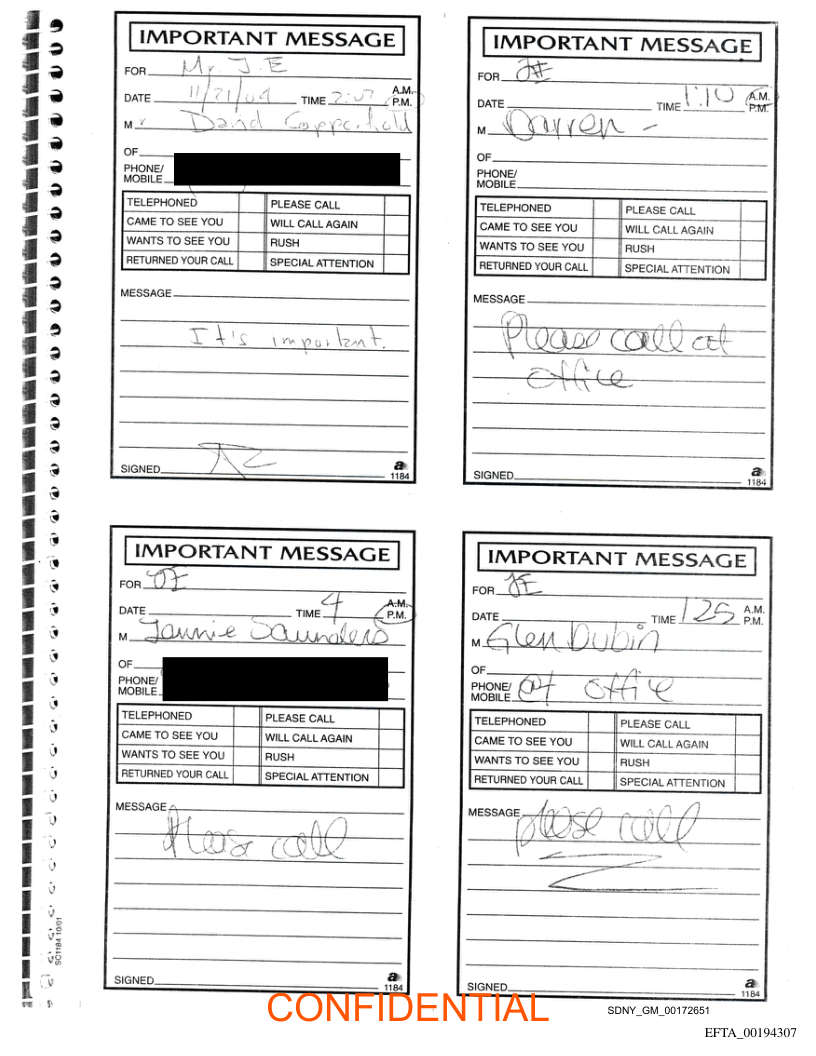 IMPORTANT MESSAGE
FOR Mr J.E
DATE 11/21/04 TIME 2:07 A.M. P.M.
M r David Copperfield
OF
PHONE/ MOBILE
TELEPHONED PLEASE CALL
CAME TO SEE YOU WILL CALL AGAIN
WANTS TO SEE YOU RUSH
RETURNED YOUR CALL SPECIAL ATTENTION
MESSAGE
It's important.
SIGNED
a
1184
IMPORTANT MESSAGE
FOR JE
DATE TIME 1:10 A.M. P.M.
M Darren -
OF
PHONE/ MOBILE
TELEPHONED PLEASE CALL
CAME TO SEE YOU WILL CALL AGAIN
WANTS TO SEE YOU RUSH
RETURNED YOUR CALL SPECIAL ATTENTION
MESSAGE
Please call at
office
SIGNED
a
1184
IMPORTANT MESSAGE
FOR JE
DATE TIME 4 A.M. P.M.
M Saunders
OF
PHONE/ MOBILE
TELEPHONED PLEASE CALL
CAME TO SEE YOU WILL CALL AGAIN
WANTS TO SEE YOU RUSH
RETURNED YOUR CALL SPECIAL ATTENTION
MESSAGE
Please call
SIGNED
a
1184
IMPORTANT MESSAGE
FOR JE
DATE TIME 125 A.M. P.M.
M Glen Dubin
OF
PHONE/ MOBILE at office
TELEPHONED PLEASE CALL
CAME TO SEE YOU WILL CALL AGAIN
WANTS TO SEE YOU RUSH
RETURNED YOUR CALL SPECIAL ATTENTION
MESSAGE
please call
SIGNED
a
1184
SC1184 10/01
CONFIDENTIAL
SDNY_GM_00172651
EFTA_00194307